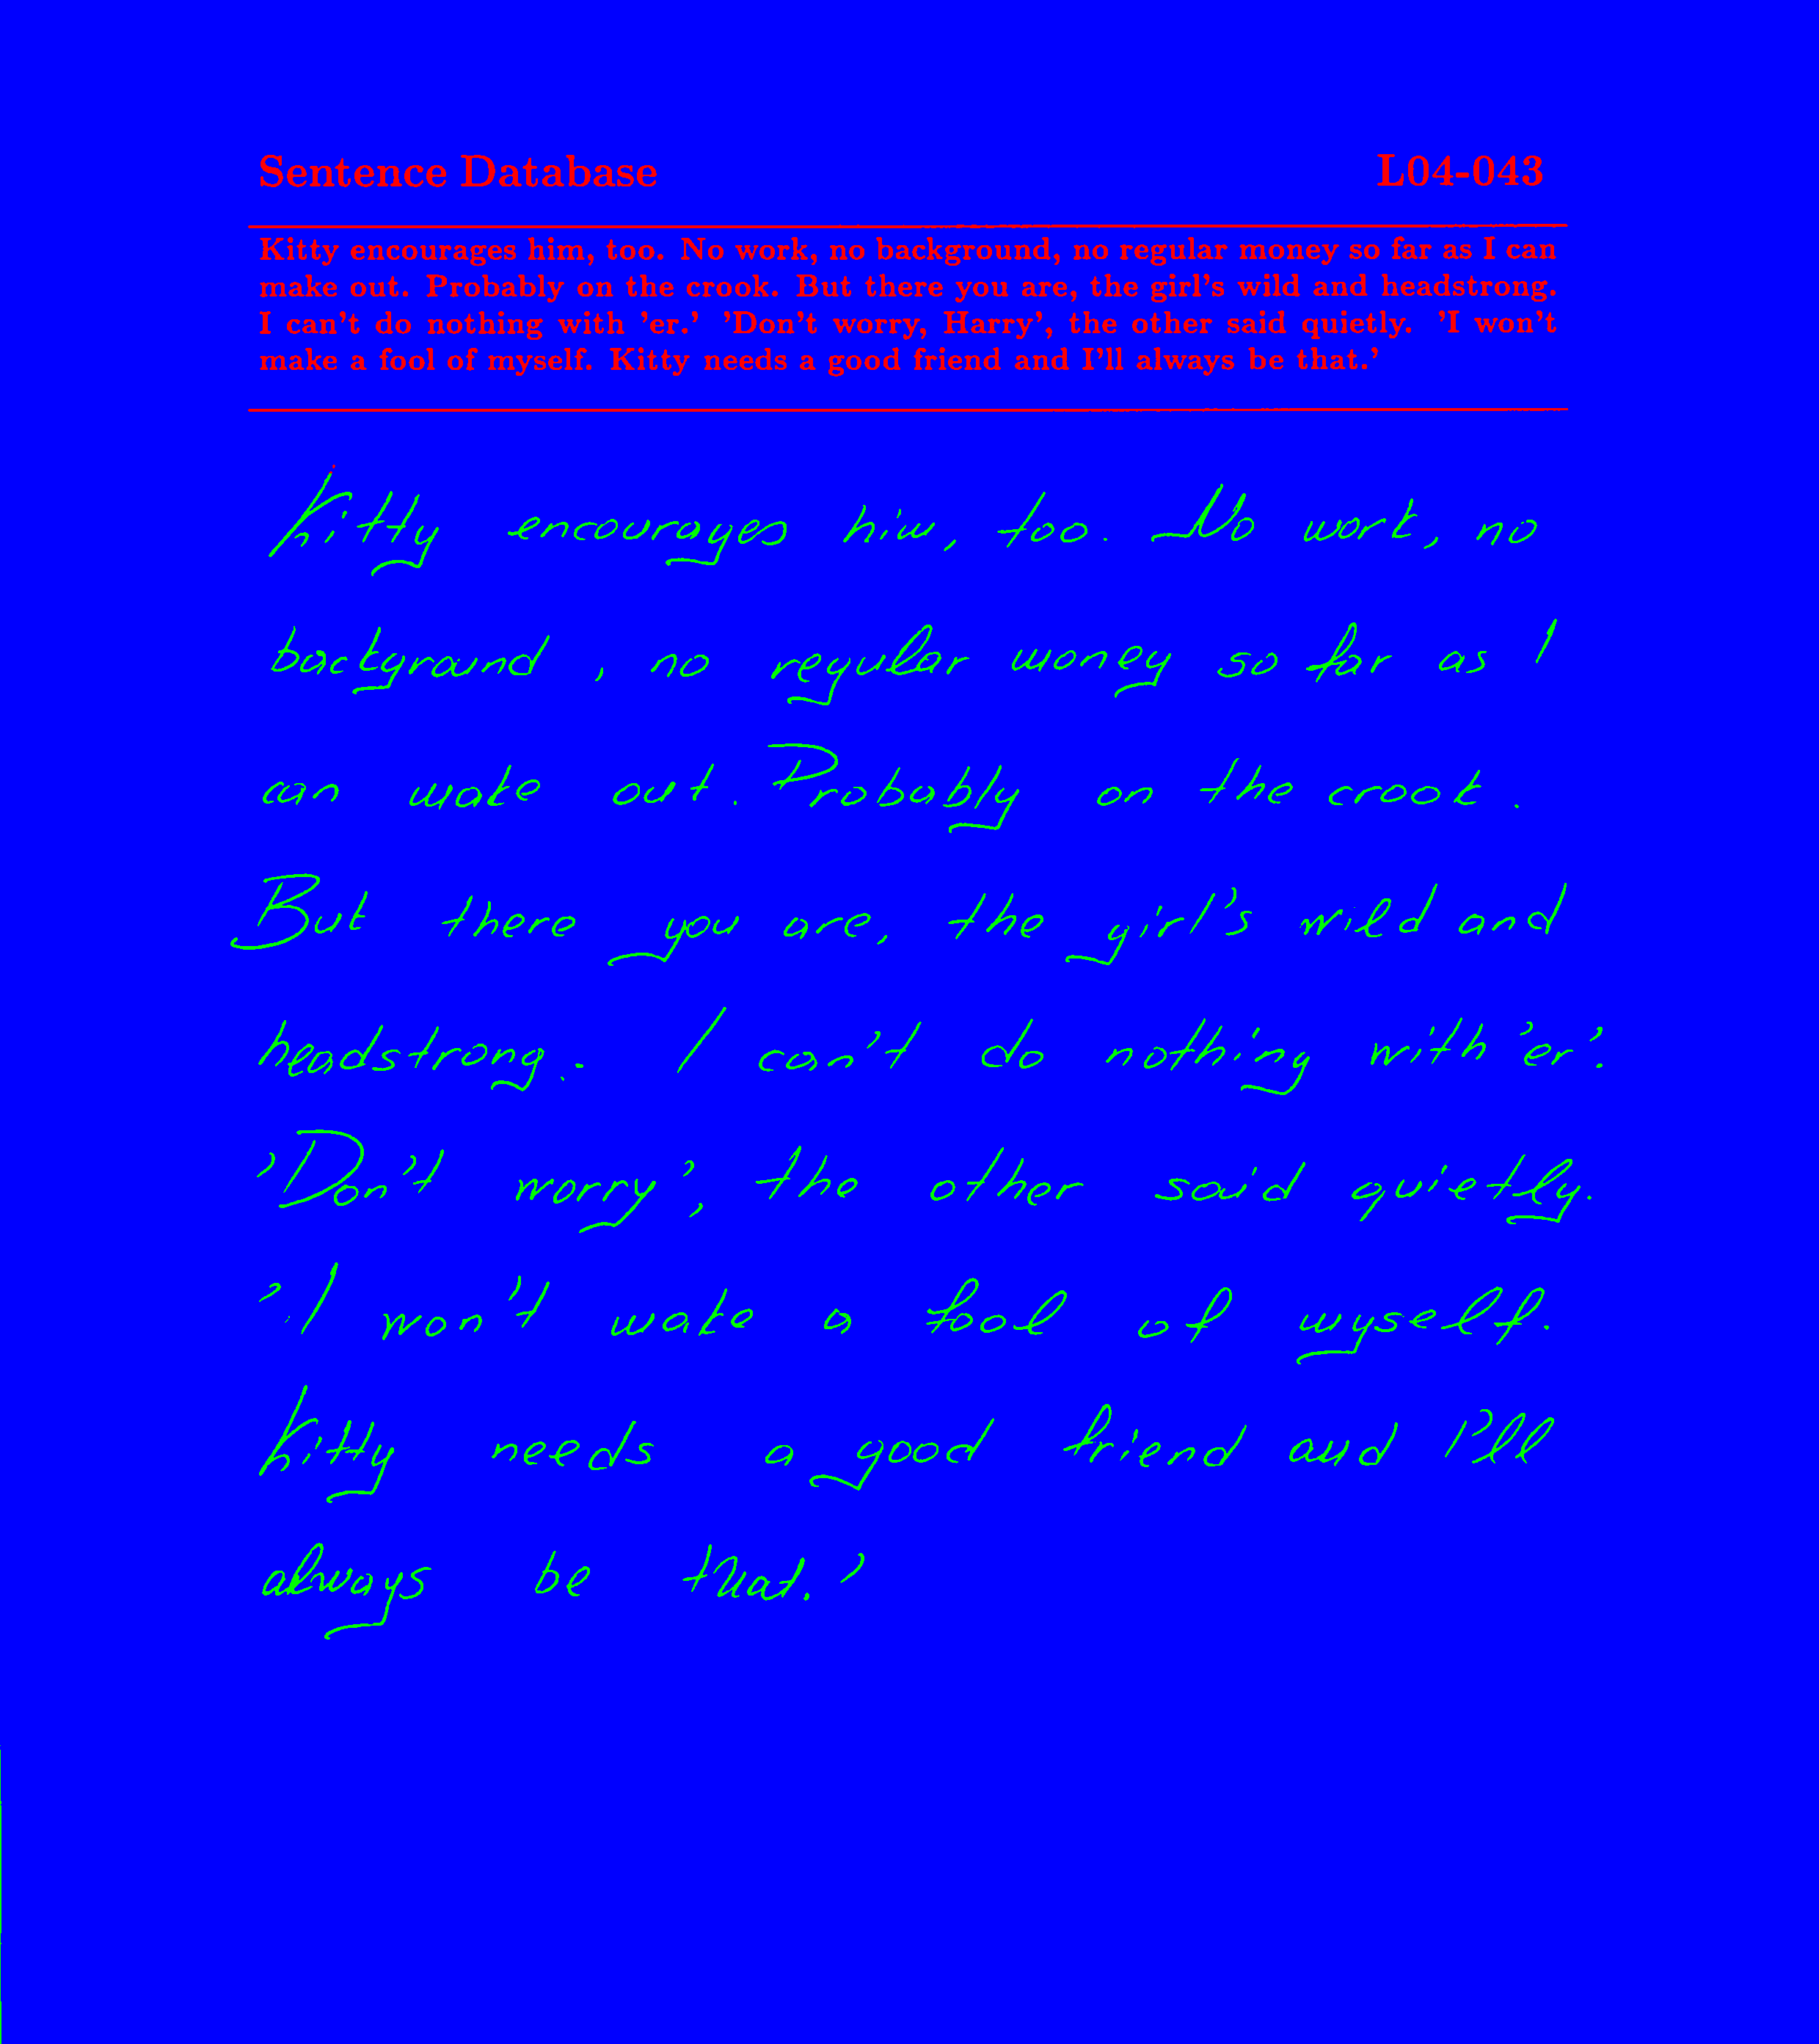 Sentence Database L04-043
Kitty encourages him, too. No work, no background, no regular money so far as I can
make out. Probably on the crook. But there you are, the girl's wild and headstrong.
I can't do nothing with 'er.' 'Don't worry, Harry', the other said quietly. 'I won't
make a fool of myself. Kitty needs a good friend and I'll always be that.'
Kitty encourages him, too. No work, no
background, no regular money so far as I
can make out. Probably on the crook.
But there you are, the girl's wild and
headstrong. I can't do nothing with 'er'.
'Don't worry', the other said quietly.
'I won't make a fool of myself.
Kitty needs a good friend and I'll
always be that.'